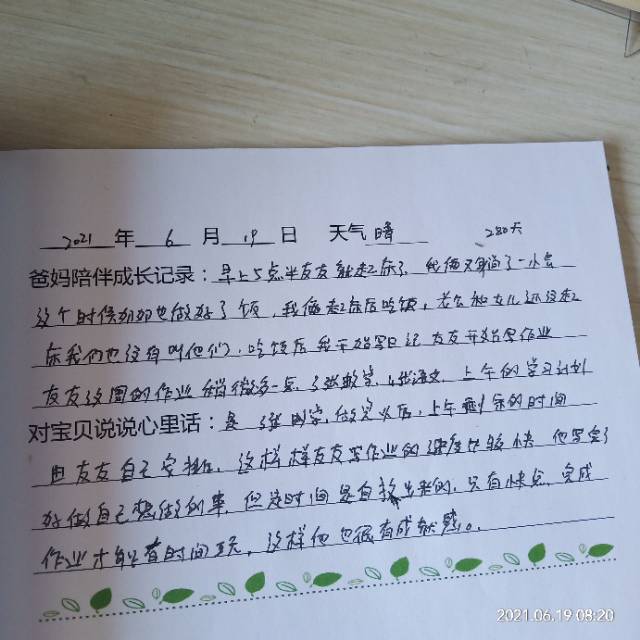 2021 年 6 月 19 日 天气 晴 280天
爸妈陪伴成长记录：早上5点半友友就起床了，我俩又躺了一小会
这个时候奶奶也做好了饭，我俩起床后吃饭，老公和女儿还没起
床我们也没有叫他们，吃饭后我开始写日记友友开始写作业
友友这周的作业稍微多一点，3张数学，4张语文，上午的学习计划
对宝贝说说心里话：是3张数学，做完以后，上午剩余的时间
由友友自己安排，这样样友友写作业的速度比较快他写完了
好做自己想做的事，但这时间是自救出来的，只有快点完成
作业才能有时间玩，这样他也很有成就感。
2021.06.19 08:20